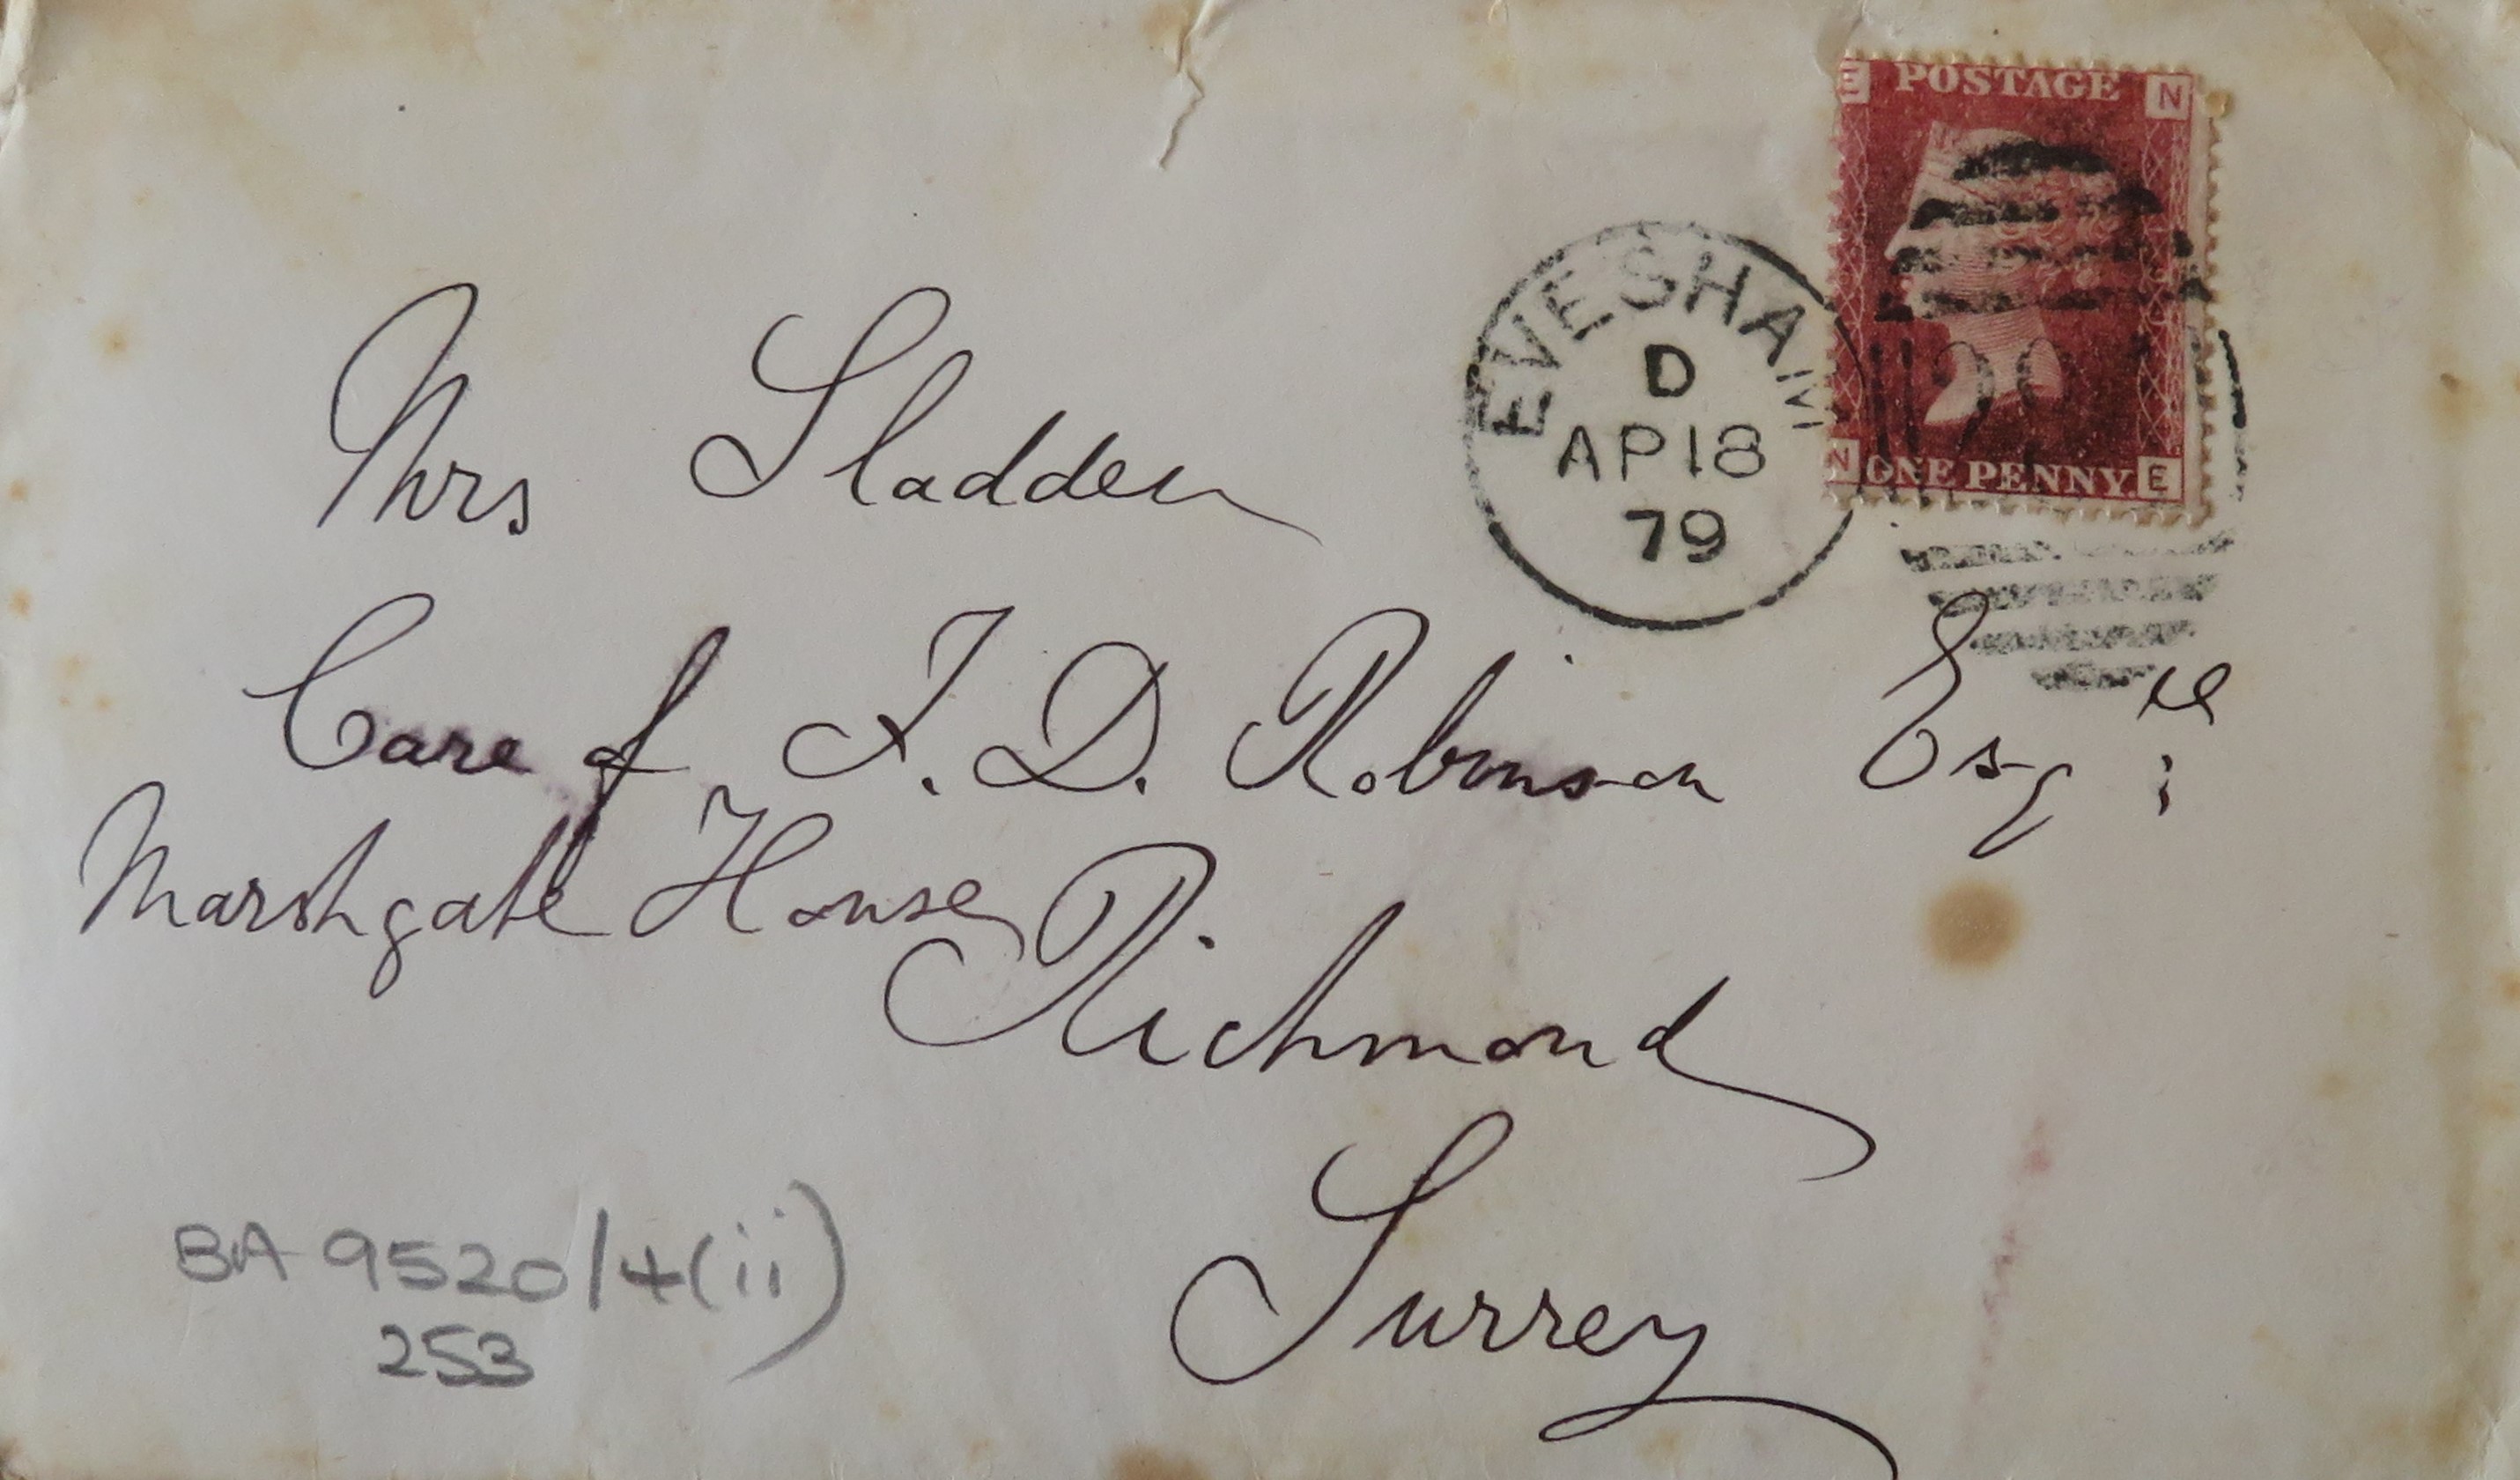 E POSTAGE N
EVESHAM
D
AP 18
79
N ONE PENNY. E
Mrs Sladden
Care of T. D. Robinson Esqre
Marshgate House
Richmond
Surrey
BA 9520/4(ii)
253